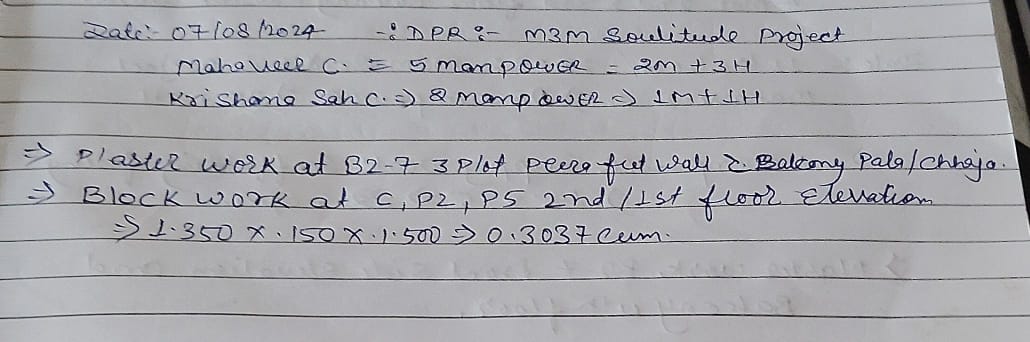 Date:- 07/08/2024 -: DPR :- M3M Soulitude Project
Mahaveer C. = 5 manpower = 2M + 3H
Krishana Sah C. => 2 manpower => 1M + 1H
=> Plaster work at B2-7 3 Plot feet wall & Balcony Pala/chhaja.
=> Block work at C, P2, P5 2nd /1st floor Elevation
=> 1.350 x .150 x 1.500 => 0.3037 cum.